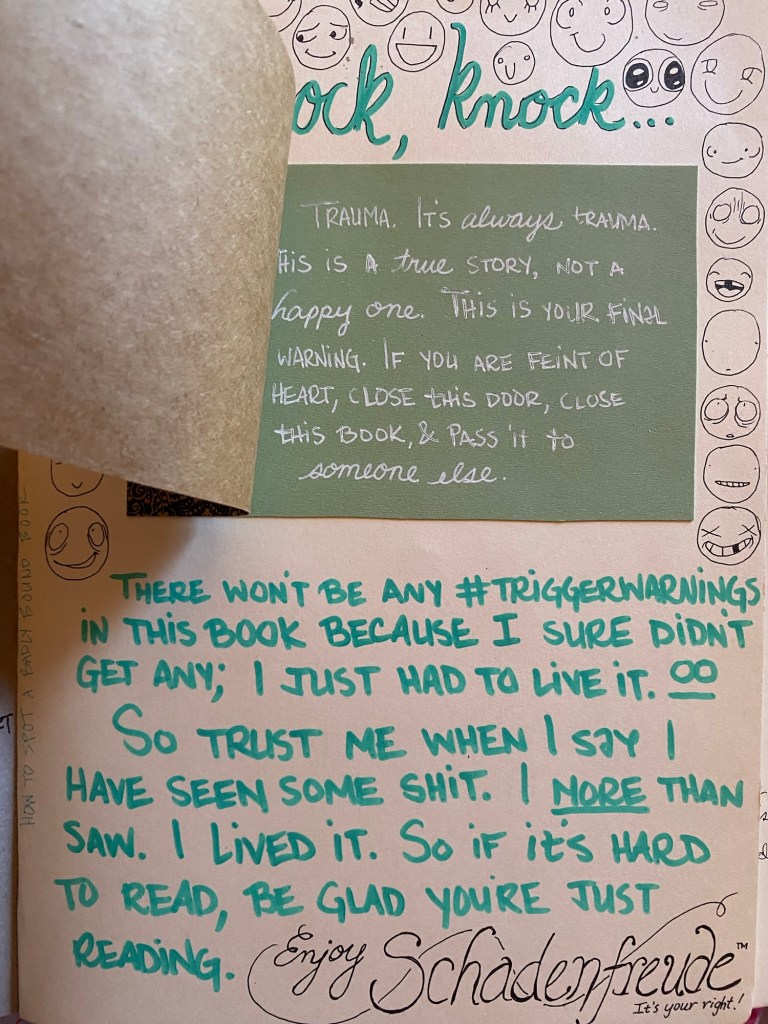 ock, knock...
TRAUMA. It's always trauma.
his is a true story, not a
happy one. This is your final
warning. If you are feint of
heart, close this door, close
this book, & pass it to
someone else.
There won't be any #triggerwarnings
in this book because I sure didn't
get any; I just had to live it.
So trust me when I say I
have seen some shit. I more than
saw. I lived it. So if it's hard
to read, be glad you're just
reading.
Enjoy Schadenfreude™
It's your right!
HOW TO SPOT A BADLY BOUND BOOK